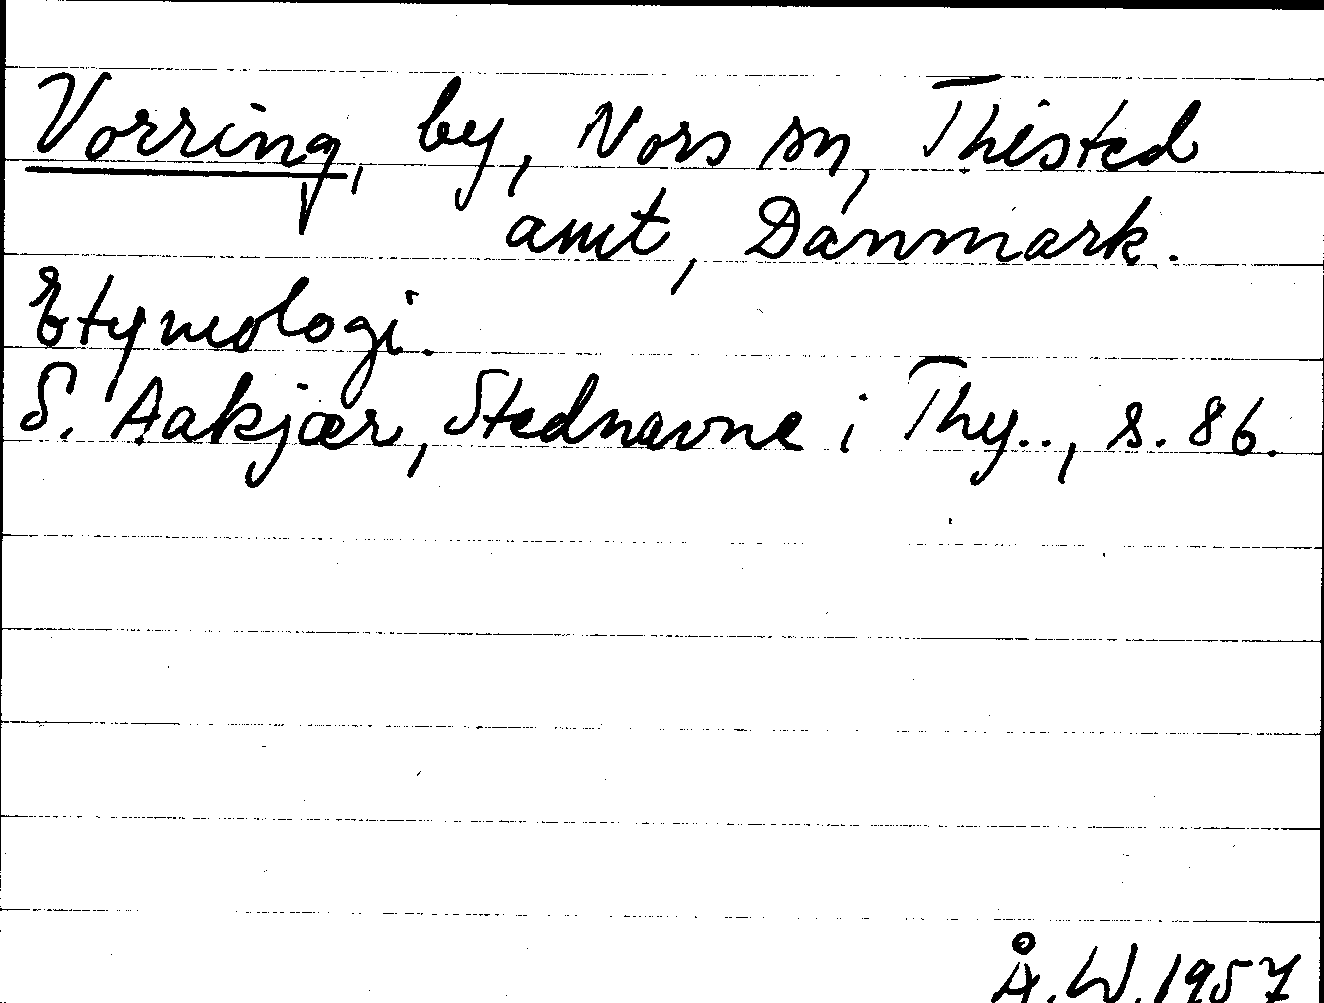 Vorring, by, Nors sn, Thisted
amt, Danmark.
Etymologi.
S. Aakjær, Stednavne i Thy.., s. 86.
Å.W.1957